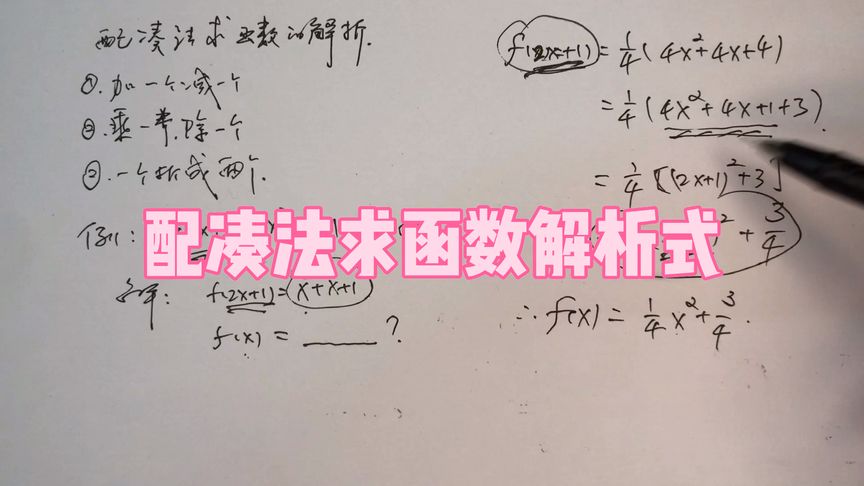 配凑法求函数的解析.
①.加一个减一个
②.乘一个.除一个
③.一个拆成两个.
例:
配凑法求函数解析式
解: f(2x+1)=x+x+1
f(x)=____?
f(2x+1)=1/4(4x²+4x+4)
=1/4(4x²+4x+1+3).
=1/4[(2x+1)²+3]
²+3/4
∴f(x)=1/4x²+3/4.